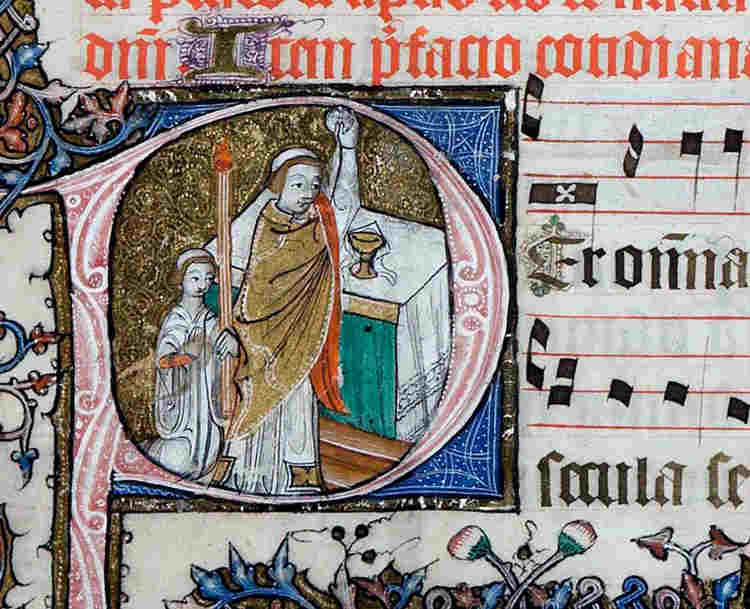 dn̄i Item p̄facio cotidiana
PEr om̄ia
secula se